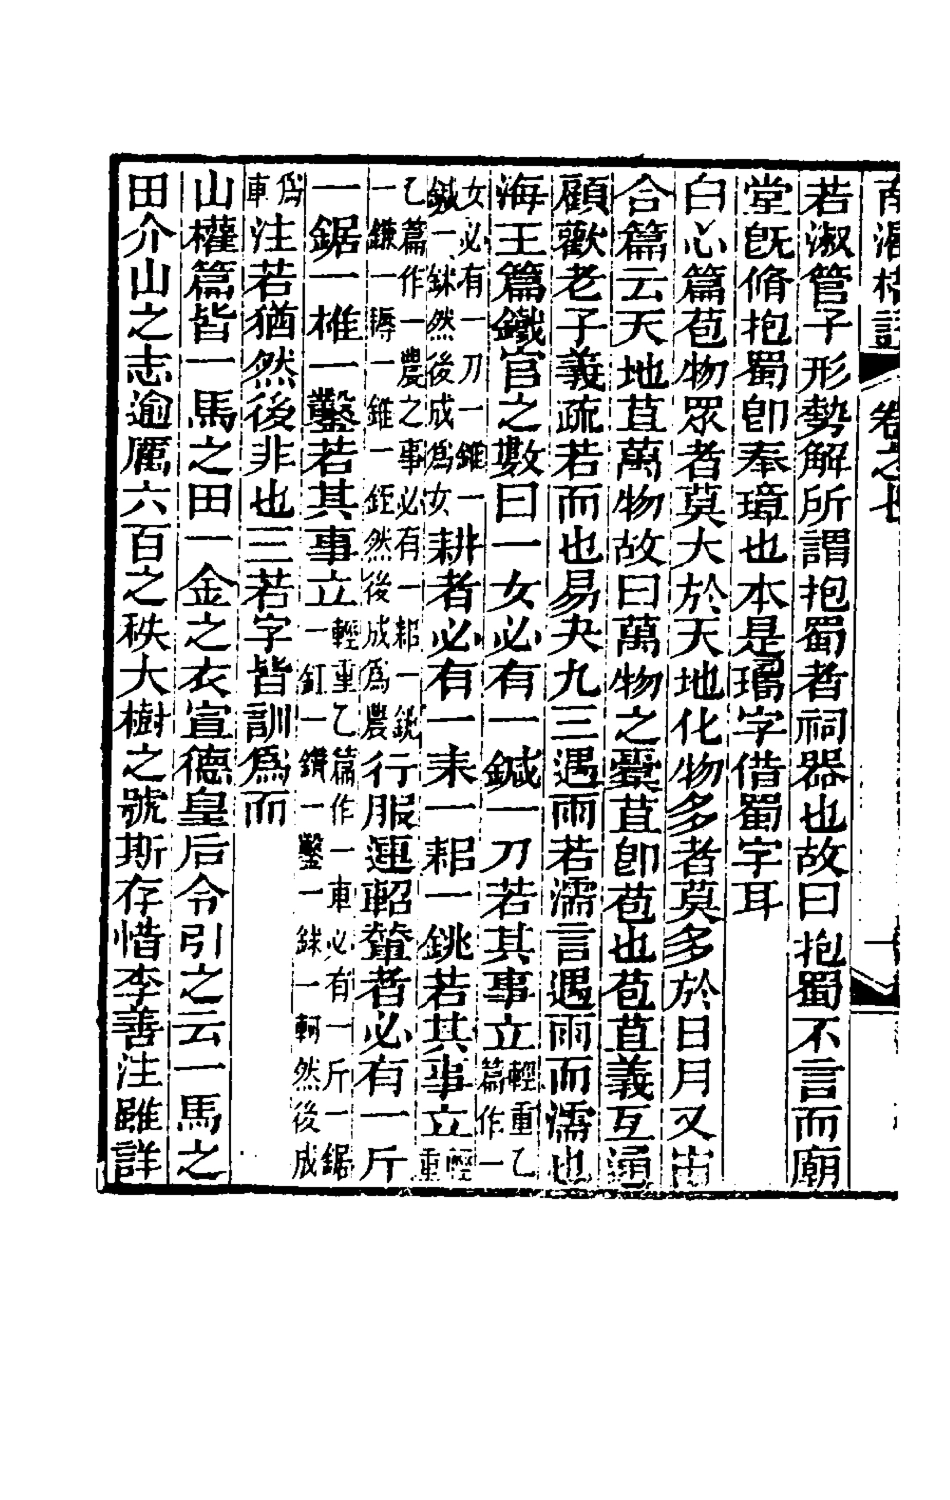 若淑管子形勢解所謂抱蜀者祠器也故曰抱蜀不言而廟
堂旣脩抱蜀卽奉璋也本是璚字借蜀字耳
白心篇苞物眾者莫大於天地化物多者莫多於日月又宙
合篇云天地苴萬物故曰萬物之橐苴卽苞也苞苴義互通
顧歡老子義疏若而也易夬九三遇雨若濡言遇雨而濡也
海王篇鐵官之數曰一女必有一鍼一刀若其事立輕重乙篇作一
女必有一刀一錐一鍼一鉥然後成爲女耕者必有一耒一耜一銚若其事立輕重
乙篇作一農之事必有一耜一銚一鎌一鎒一錐一銍然後成爲農行服連軺輂者必有一斤
一鋸一椎一鑿若其事立輕重乙篇作一車必有一斤一鋸一釭一鑽一鑿一銶一軻然後成
爲車注若猶然後非也三若字皆訓爲而
山權篇皆一馬之田一金之衣宣德皇后令引之云一馬之
田介山之志逾厲六百之秩大樹之號斯存惜李善注雖詳
卷之七